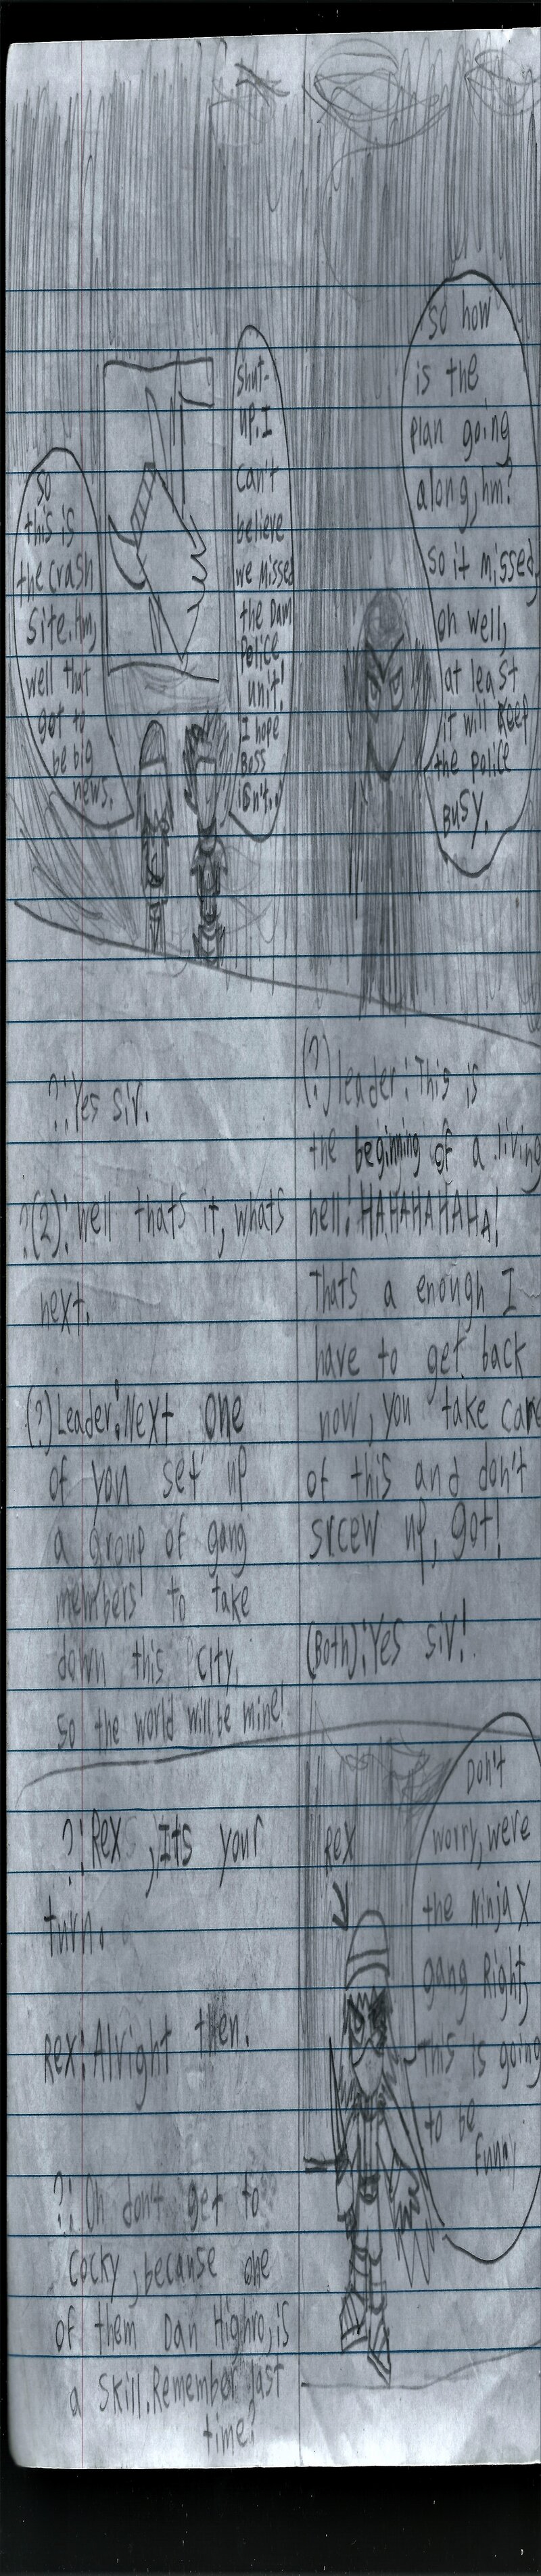 so
this is
the crash
site. Hm,
well that
got to
be big
news.
Shut-
up. I
can't
believe
we missed
the Dam
Police
unit!
I hope
Boss
isn't..
so how
is the
plan going
along, hm?
so it missed,
oh well,
at least
it will keep
the police
Busy.
?: Yes sir.
?(2): well thats it, whats
next.
(?) Leader: Next one
of you set up
a group of gang
members to take
down this city,
so the world will be mine!
(?) leader: This is
the beginning of a living
hell! HAHAHAHAHA!
Thats a enough I
have to get back
now, you take care
of this and don't
srcew up, got!
(Both): Yes sir!
?: Rex, Its your
turn.
Rex: Alright then.
?: Oh don't get to
cocky, because one
of them Dan Highro, is
a skill. Remember last
time?
Rex
Don't
worry, were
the Ninja X
gang Right,
This is going
to be
funn,